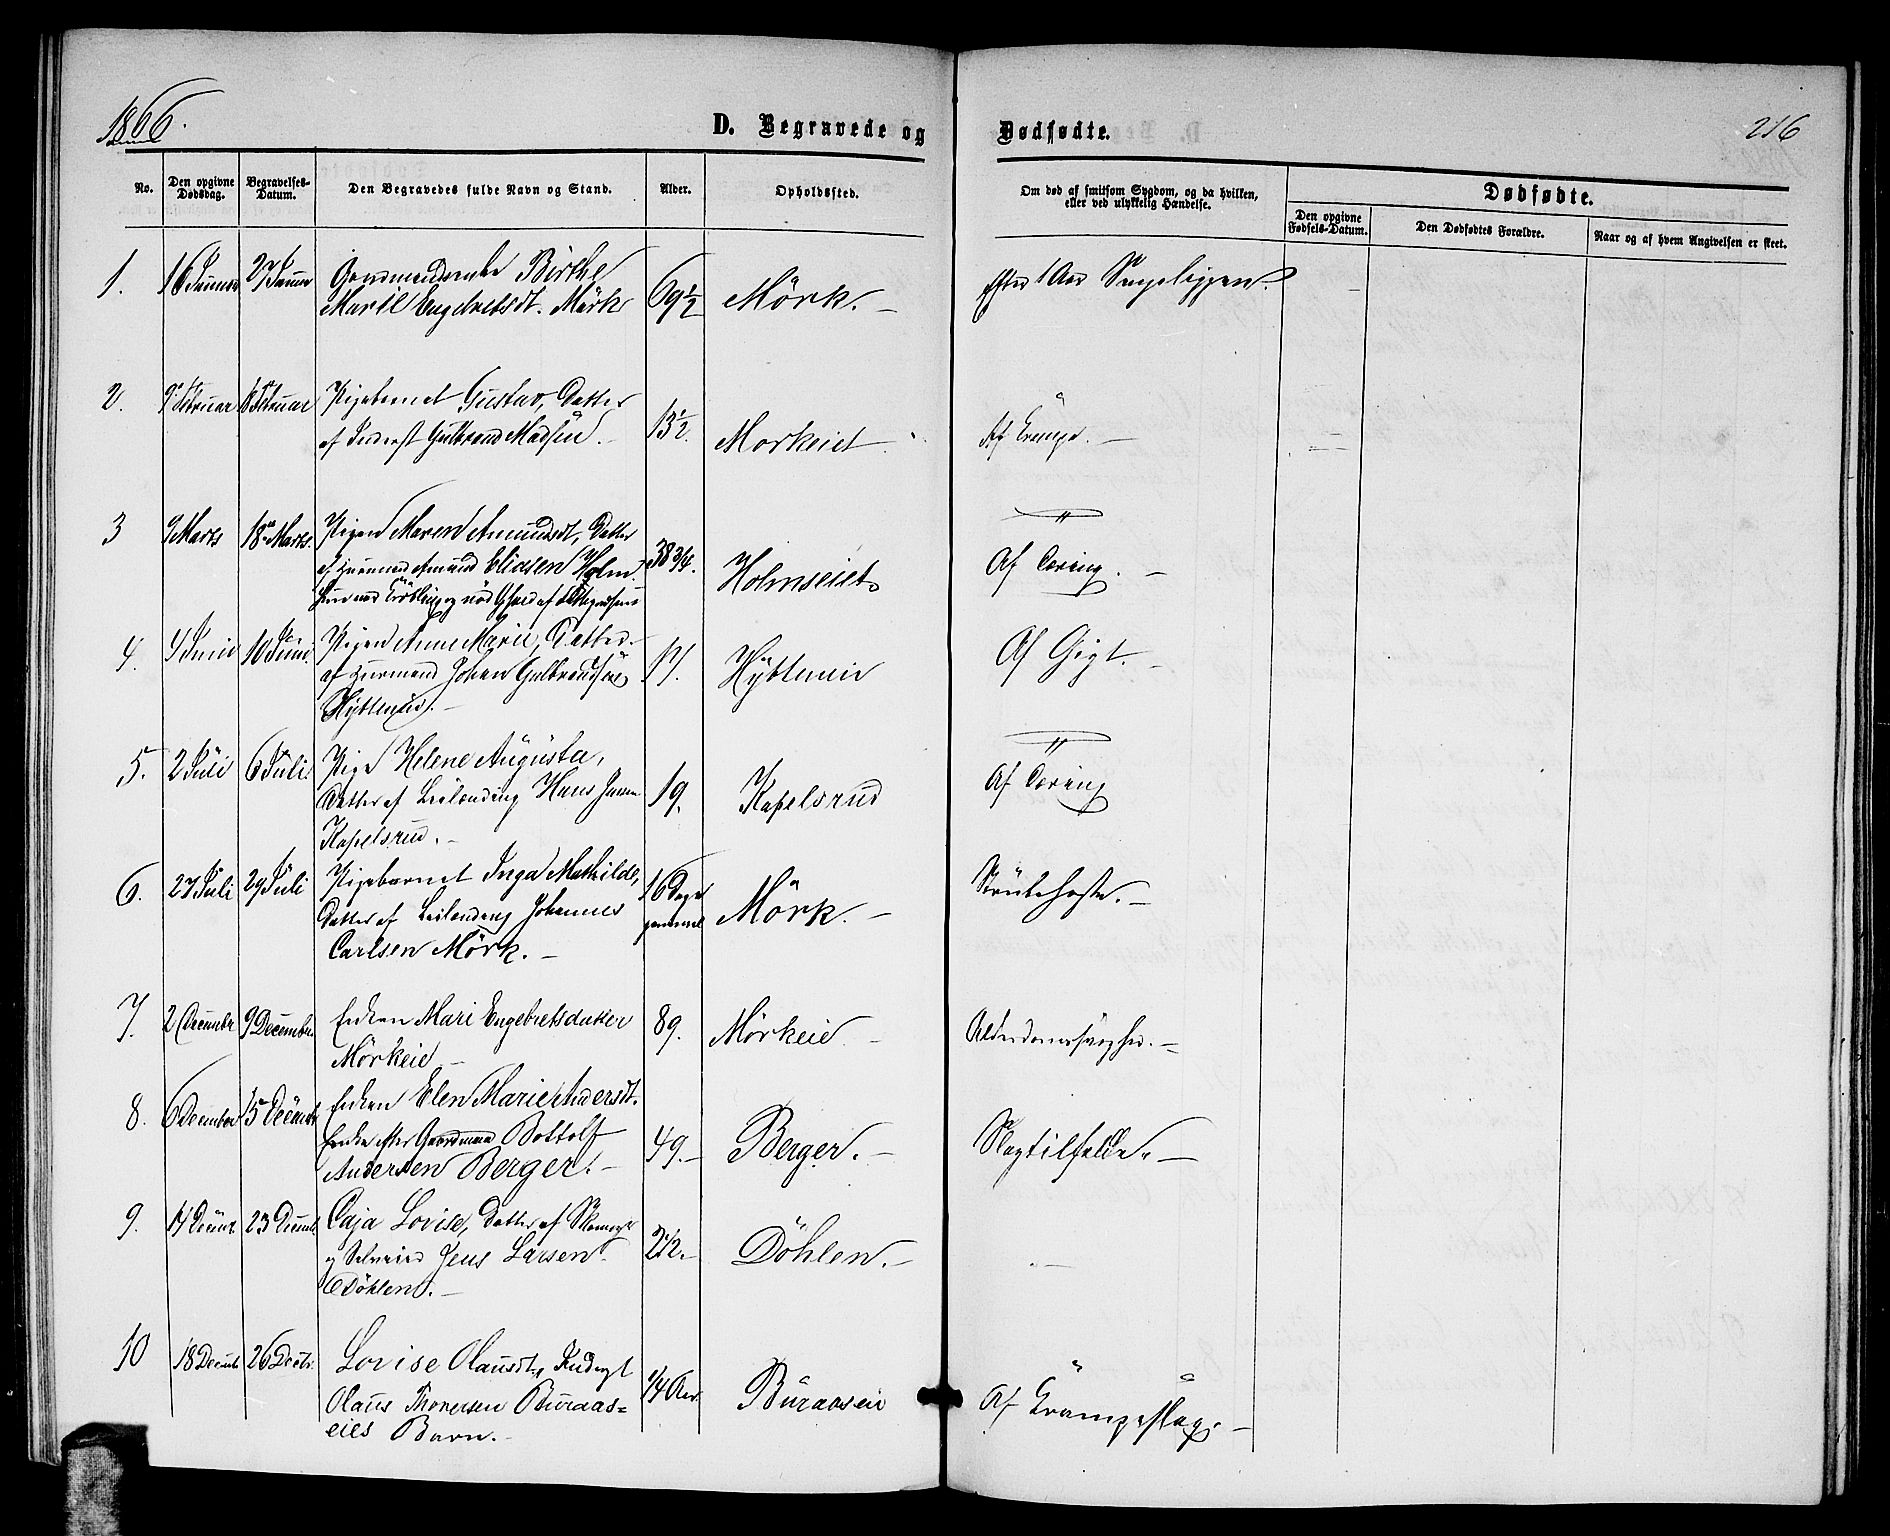 1866.
D. Begravede og
Dødfødte.
216
No.
Den opgivne Dødsdag.
Begravelses-Datum.
Den Begravedes fulde Navn og Stand.
Alder.
Opholdssted.
Om død af smitsom Sygdom, og da hvilken,
eller ved ulykkelig Hændelse.
Dødfødte.
Den opgivne Fødsels-Datum.
Den Dødfødtes Forældre.
Naar og af hvem Angivelsen er skeet.
1. 16 Januar 27 Januar Birthe
Marie Engebretsdt. Mörk 69 1/2 Mörk. — Efter 1 Aar Sengeliggen.
2. 9de Februar 18 Februar Pigebarnet Gustav, Datter
af Inderst Gulbrand Madsen. — 13 1/2. Morkeiet. Af Krampe. —
3 9 Marts 18de Marts. Pigen Maren Amundsdt, Datter
af Huusmand Amund Eliasen Holm. 38 3/4. Holmseiet Af Tæring. —
4. 4 Juni 10 Juni. Pigen Anne Marie, Datter
af Huusmand Johan Gulbrandsen 17. Hytteneie Af Gigt. —
5. 2 Juli 6 Juli. Pige Helene Augusta,
Datter af Leilænding Hans Jensen 19. Kapelsrud Af Tæring
Kapelsrud. —
6. 27 Juli 29 Juli Pigebarnet Inga Mathilde, 16 Dage
Datter af Leilænding Johannes gammel Mörk. — Strubehoste. —
Carlsen Mørk. —
7. 2 December 9 December. Enken Mari Engebretsdatter 89. Mörkeie — Alderdomssvaghed. —
Mörkeie —
8. 6 December 15 December Enken Elen Marie Andersdt.
Enke efter Gaardmand Bottolf 49. — Berger. — Slagtilfelde. —
Andersen Berger. —
9. 14 Decembr 23 Decembr. Caja Lovise, Datter af
og Selveier Jens Larsen 2 1/2. — Döhlen. —
Döhlen. —
10 18 Decembr 26 Decbr. Lovise Olausdt, Inderst
Olaus Thoresen Buraas= 1/4 Aar. Buraaseie Af Krampeslag. —
eies Barn. —